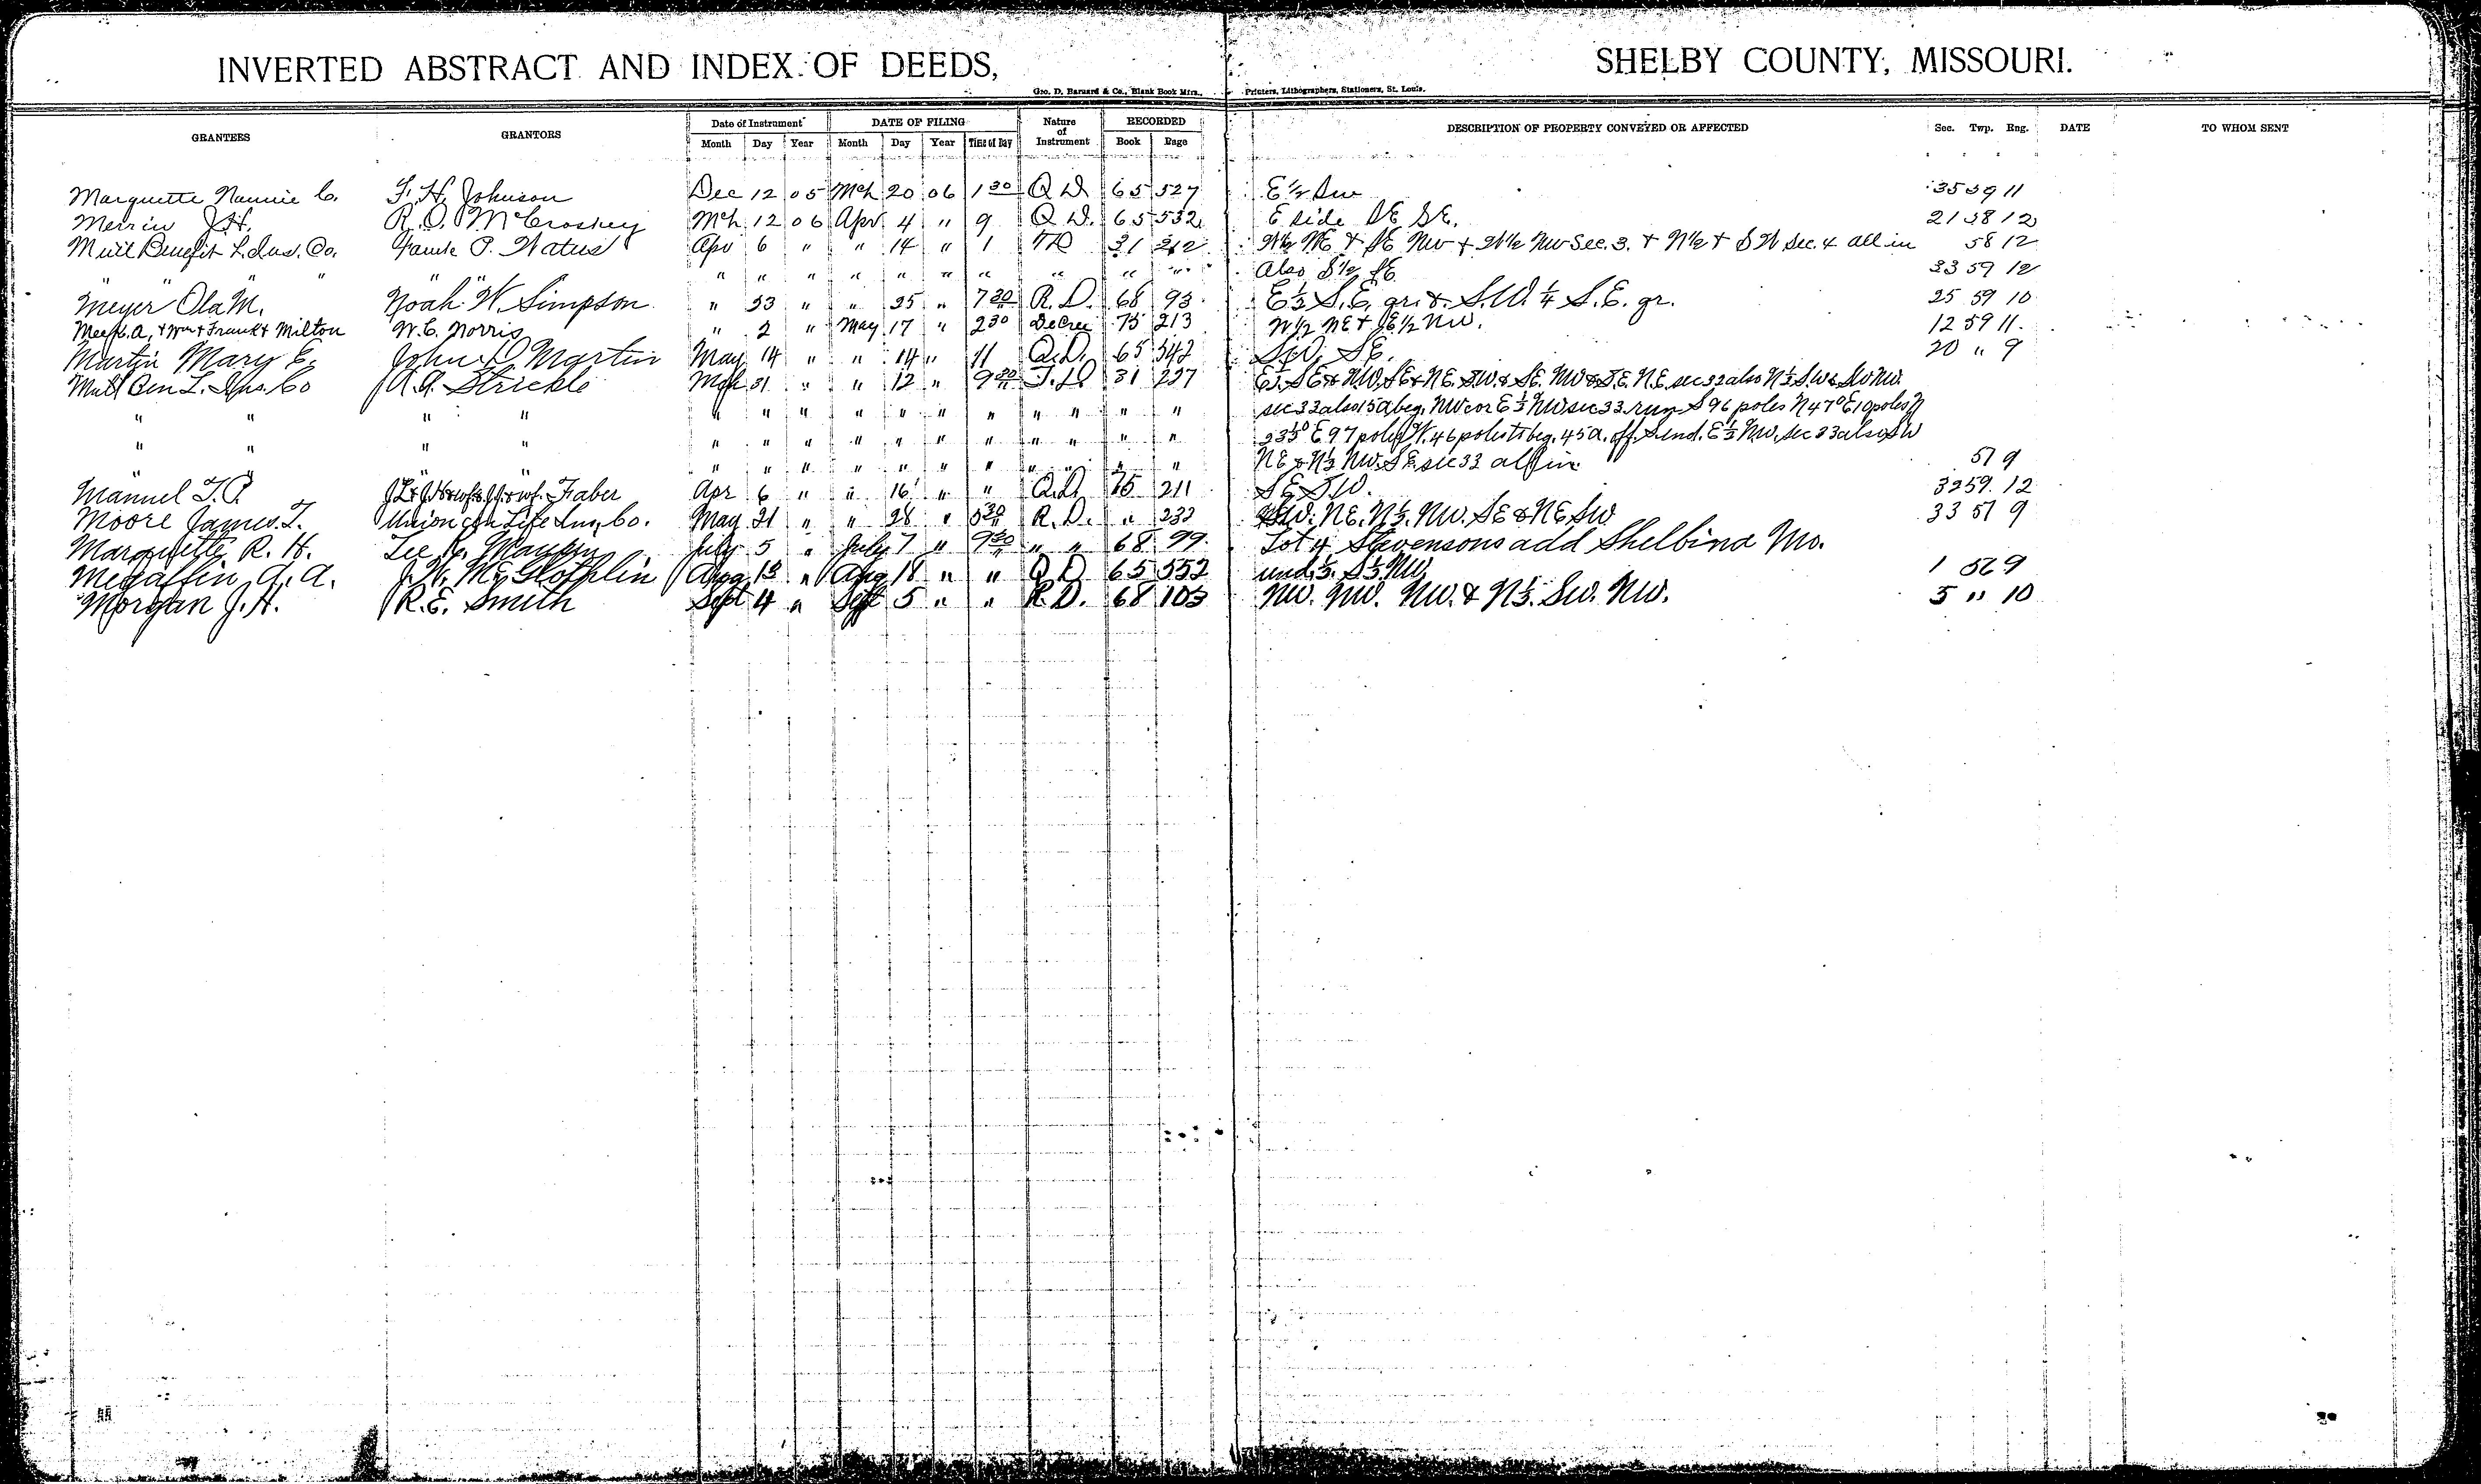 INVERTED ABSTRACT AND INDEX OF DEEDS, SHELBY COUNTY, MISSOURI.
Geo. D. Barnard & Co., Blank Book Mfrs., Printers, Lithographers, Stationers, St. Louis.
GRANTEES GRANTORS Date of Instrument DATE OF FILING Nature of Instrument RECORDED DESCRIPTION OF PROPERTY CONVEYED OR AFFECTED Sec. Twp. Rng. DATE TO WHOM SENT
Month Day Year Month Day Year Time of Day Book Page
Marquette Nannie C. F. H. Johnson Dec 12 05 Mch 20 06 1 30 Q D 65 527 E 1/2 Sw 35 59 11
Merrin J.H. R. O. McCroskey Mch 12 06 Apr 4 " 9 Q D. 65 532 E side SE SE. 21 58 12
Mutl Benefit L. Ins. Co. P. Apr 6 " " 14 " 1 31 212 W 1/2 NE + SE NW + W 1/2 NW Sec. 3. + N 1/2 + SW Sec. 4 all in 58 12
" " " " " " " " " " " " " " Also S 1/2 SE 33 59 12
Meyer Ola M. Noah W. Simpson " 23 " " 25 " 7 30 R. D. 68 93 E 1/2 S.E. qr. & S.W. 1/4 S.E. qr. 25 59 10
+ Wm + Frank + Milton W. C. Norris " 2 " May 17 " 2 30 Decree 75 213 N 1/2 NE + SE 1/2 NW. 12 59 11
Martin Mary E. John D Martin May 14 " " 14 " 11 Q.D. 65 542 SW. SE. 20 " 9
Mutl Ben L. Ins. Co A. G. Strickle Mch 31 " " 12 " 9 30 T.D 31 227 E 1/2 SE & NW. SE & NE. SW. & SE. NW & S.E. N.E. sec 32 also N 1/2 S.W & SW NW.
" " " " " " " " " " " " " " " sec 33 also 15a beg. NW cor E 1/2 NW sec 33. run S 96 poles N 47° E 10 poles N
" " " " " " " " " " " " " " " 23 1/2° E 97 poles W. 46 poles to beg. 45 a. off S. end. E 1/2 NW. sec 33 also SW
" " " " " " " " " " " " " " NE & N 1/2 NW. SE. sec 33 all in 57 9
Mannel T. P. Faber Apr 6 " " 16 " " Q.D. 75 211 SE SW. 32 59 12
Moore James T. Union Cen Life Ins. Co. May 21 " " 28 " 5 30 R. D. " 232 SW. NE. N 1/2. NW. SE & NE SW 33 57 9
Marquette R. H. Lee R. Maupin July 5 " July 7 " 9 30 " " 68 99 Lot 4 Stevensons add Shelbina Mo.
Megaffin A. A. J. W. McGlothlin Aug 13 " Aug 18 " " Q D 65 552 und. 1/5. S 1/2 NW 1 9
Morgan J. H. R. E. Smith Sept 4 " Sept 5 " " R D. 68 103 NW. NW. NW. & N 1/2. SW. NW. 5 " 10